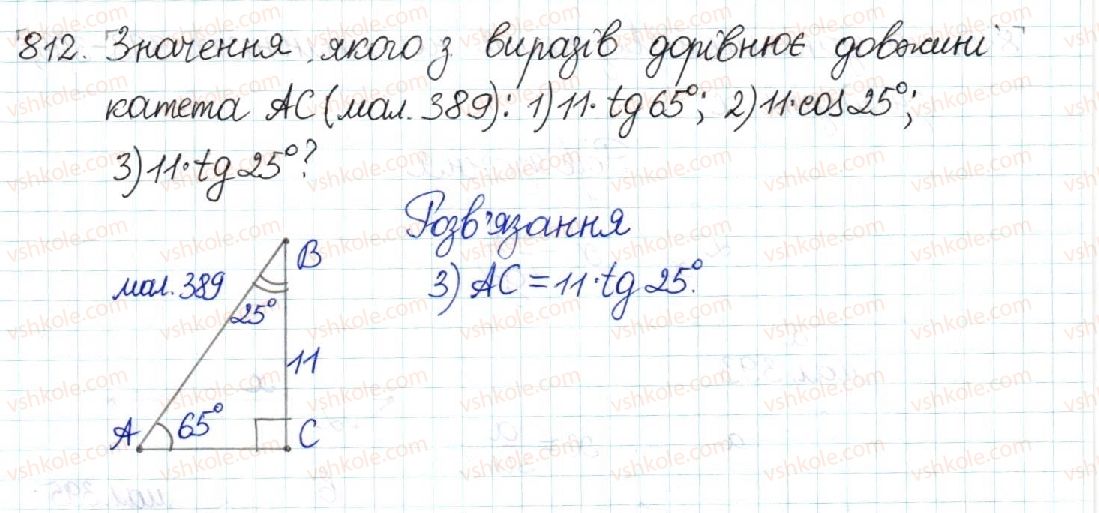 812. Значення якого з виразів дорівнює довжині
катета AC (мал. 389): 1) 11·tg 65°; 2) 11·cos 25°;
3) 11·tg 25°?
Розв'язання
3) AC = 11·tg 25°.
мал. 389
B
25°
11
A
65°
C
vshkole.com